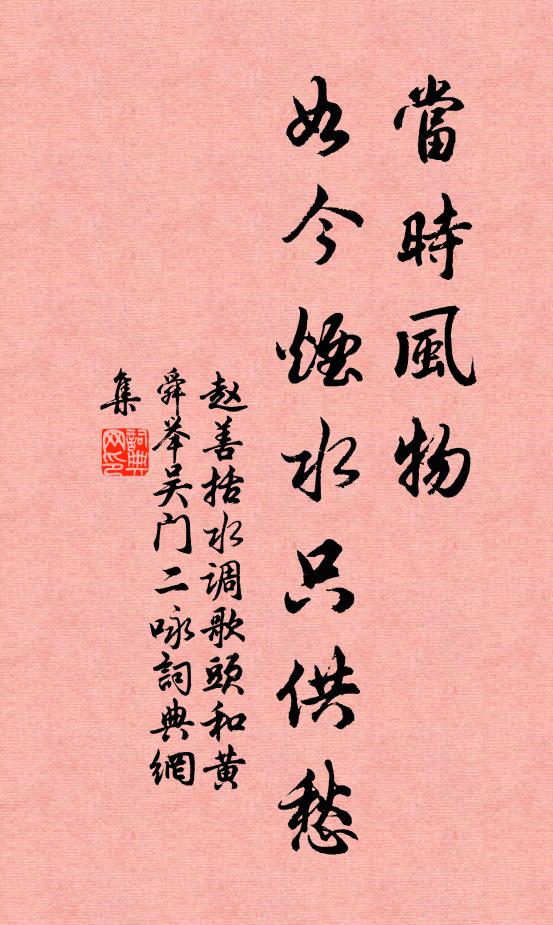 當時風物
如今煙水只供愁
赵善括水调歌頭和黄
舜举吴门二咏詞典網
集
詞典网印